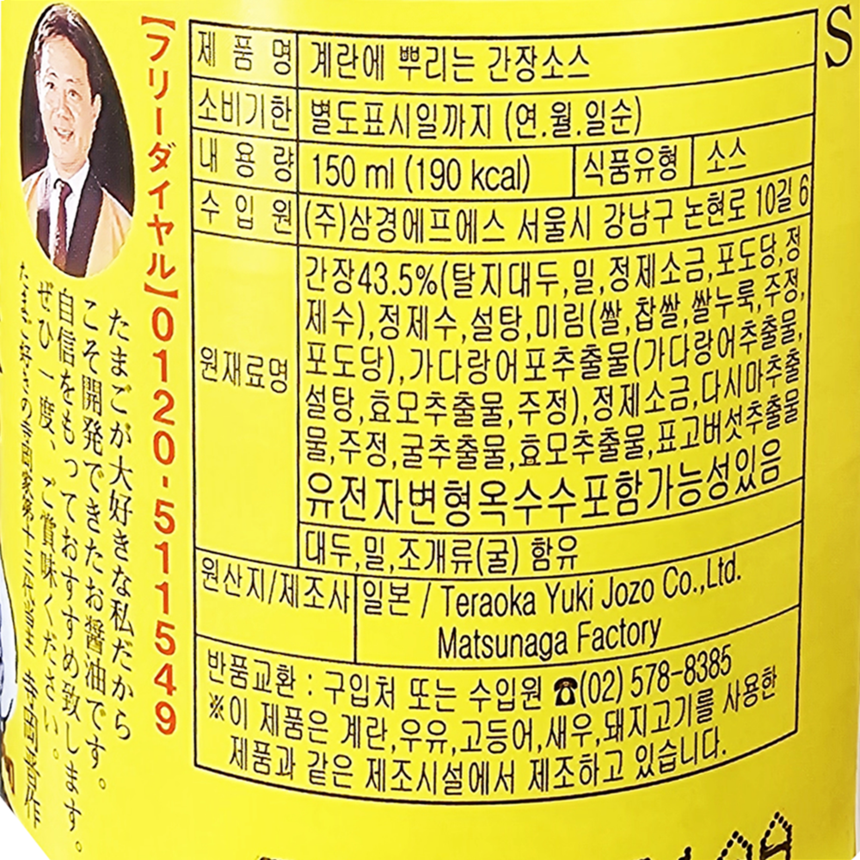 【フリーダイヤル】0120-511549
たまごが大好きな私だから
こそ開発できたお醤油です。
自信をもっておすすめ致します。
ぜひ一度、ご賞味ください。
S
제품명 계란에 뿌리는 간장소스
소비기한 별도표시일까지 (연.월.일순)
내용량 150 ml (190 kcal) 식품유형 소스
수입원 (주)삼경에프에스 서울시 강남구 논현로 10길 6
원재료명
간장43.5%(탈지대두,밀,정제소금,포도당,정
제수),정제수,설탕,미림(쌀,찹쌀,쌀누룩,주정,
포도당),가다랑어포추출물(가다랑어추출물,
설탕,효모추출물,주정),정제소금,다시마추출
물,주정,굴추출물,효모추출물,표고버섯추출물
유전자변형옥수수포함가능성있음
대두,밀,조개류(굴) 함유
원산지/제조사 일본 / Teraoka Yuki Jozo Co.,Ltd.
Matsunaga Factory
반품교환 : 구입처 또는 수입원 ☎(02) 578-8385
※이 제품은 계란,우유,고등어,새우,돼지고기를 사용한
제품과 같은 제조시설에서 제조하고 있습니다.